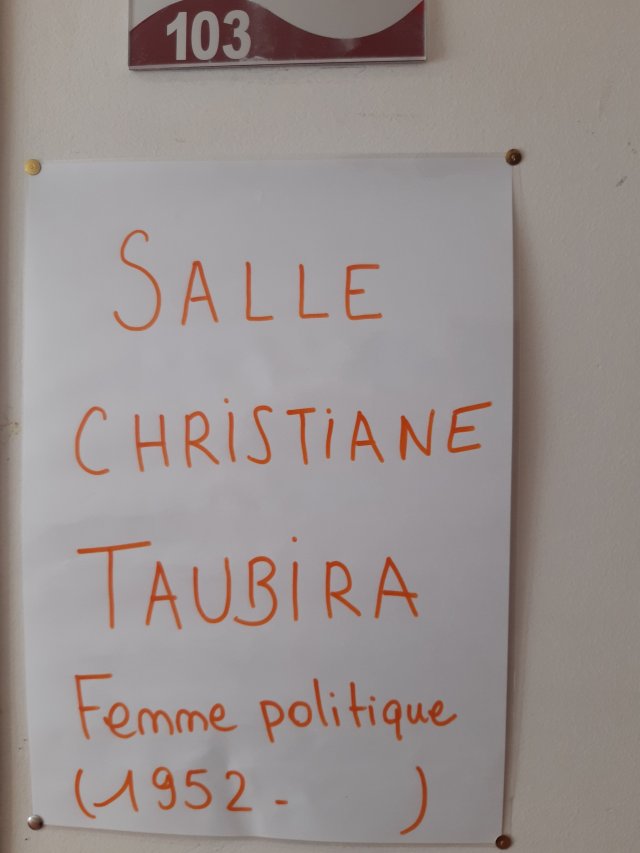 103
SALLE
CHRISTIANE
TAUBIRA
Femme politique
(1952 -        )